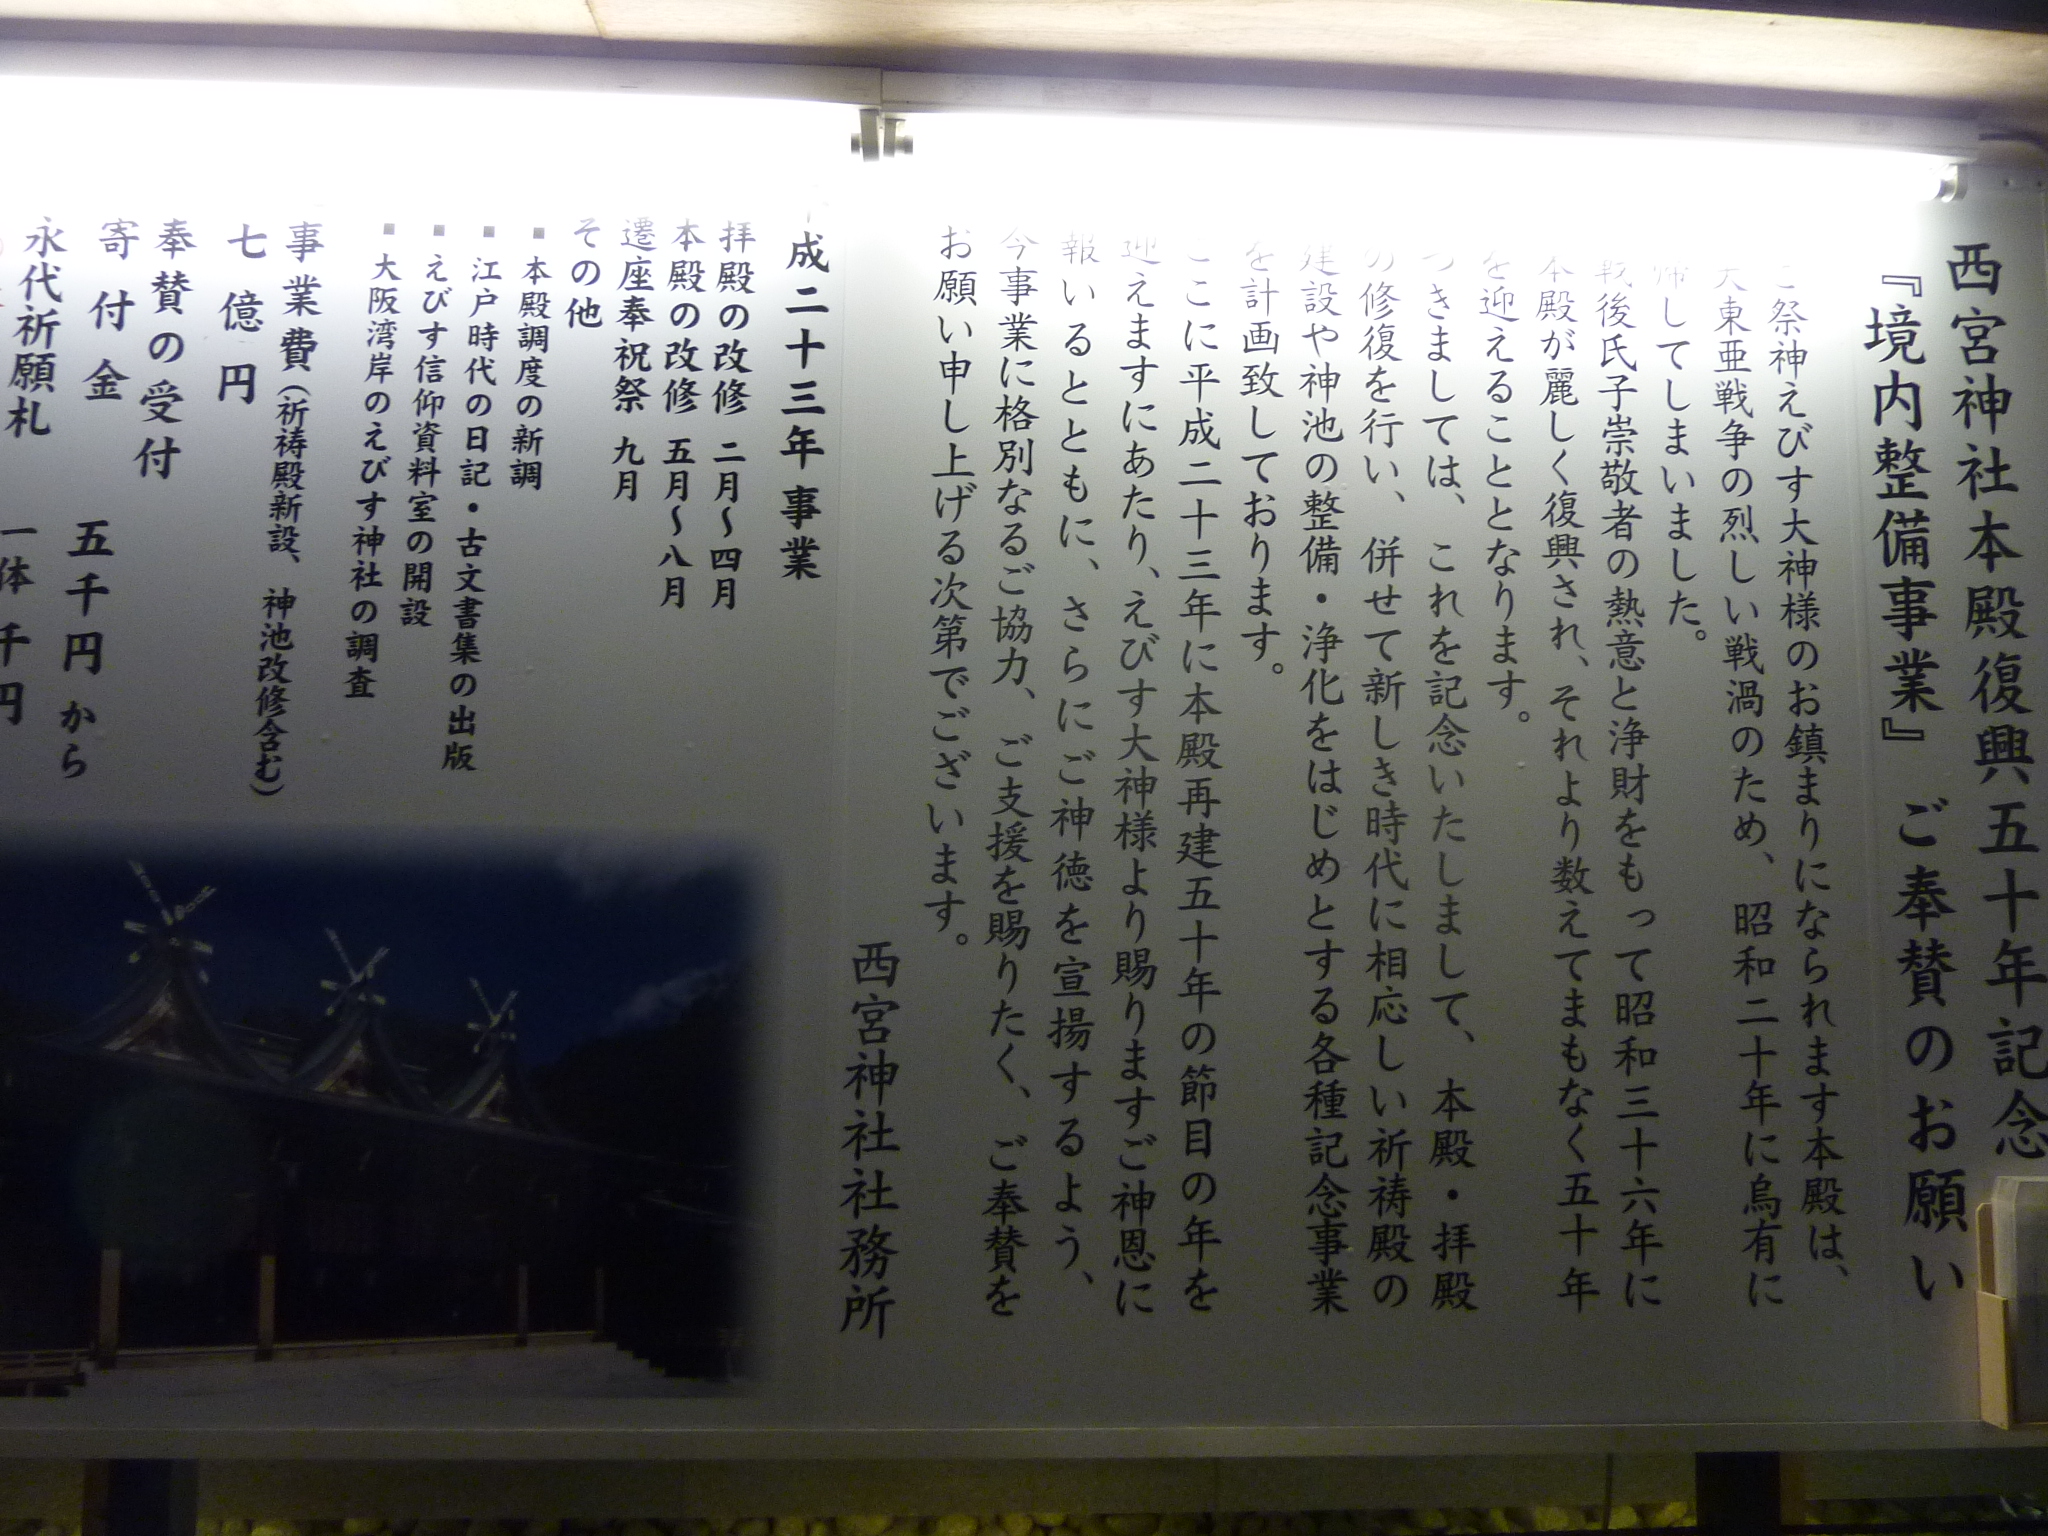 西宮神社本殿復興五十年記念
『境内整備事業』ご奉賛のお願い
ご祭神えびす大神様のお鎮まりになられます本殿は、
大東亜戦争の烈しい戦渦のため、昭和二十年に烏有に
帰してしまいました。
戦後氏子崇敬者の熱意と浄財をもって昭和三十六年に
本殿が麗しく復興され、それより数えてまもなく五十年
を迎えることとなります。
つきましては、これを記念いたしまして、本殿・拝殿
の修復を行い、併せて新しき時代に相応しい祈祷殿の
建設や神池の整備・浄化をはじめとする各種記念事業
を計画致しております。
ここに平成二十三年に本殿再建五十年の節目の年を
迎えますにあたり、えびす大神様より賜りますご神恩に
報いるとともに、さらにご神徳を宣揚するよう、
今事業に格別なるご協力、ご支援を賜りたく、ご奉賛を
お願い申し上げる次第でございます。
西宮神社社務所
成二十三年事業
拝殿の改修 二月～四月
本殿の改修 五月～八月
遷座奉祝祭 九月
その他
▪本殿調度の新調
▪江戸時代の日記・古文書集の出版
▪えびす信仰資料室の開設
▪大阪湾岸のえびす神社の調査
事業費（祈祷殿新設、神池改修含む）
七億円
奉賛の受付
寄付金 五千円から
永代祈願札 一体 千円